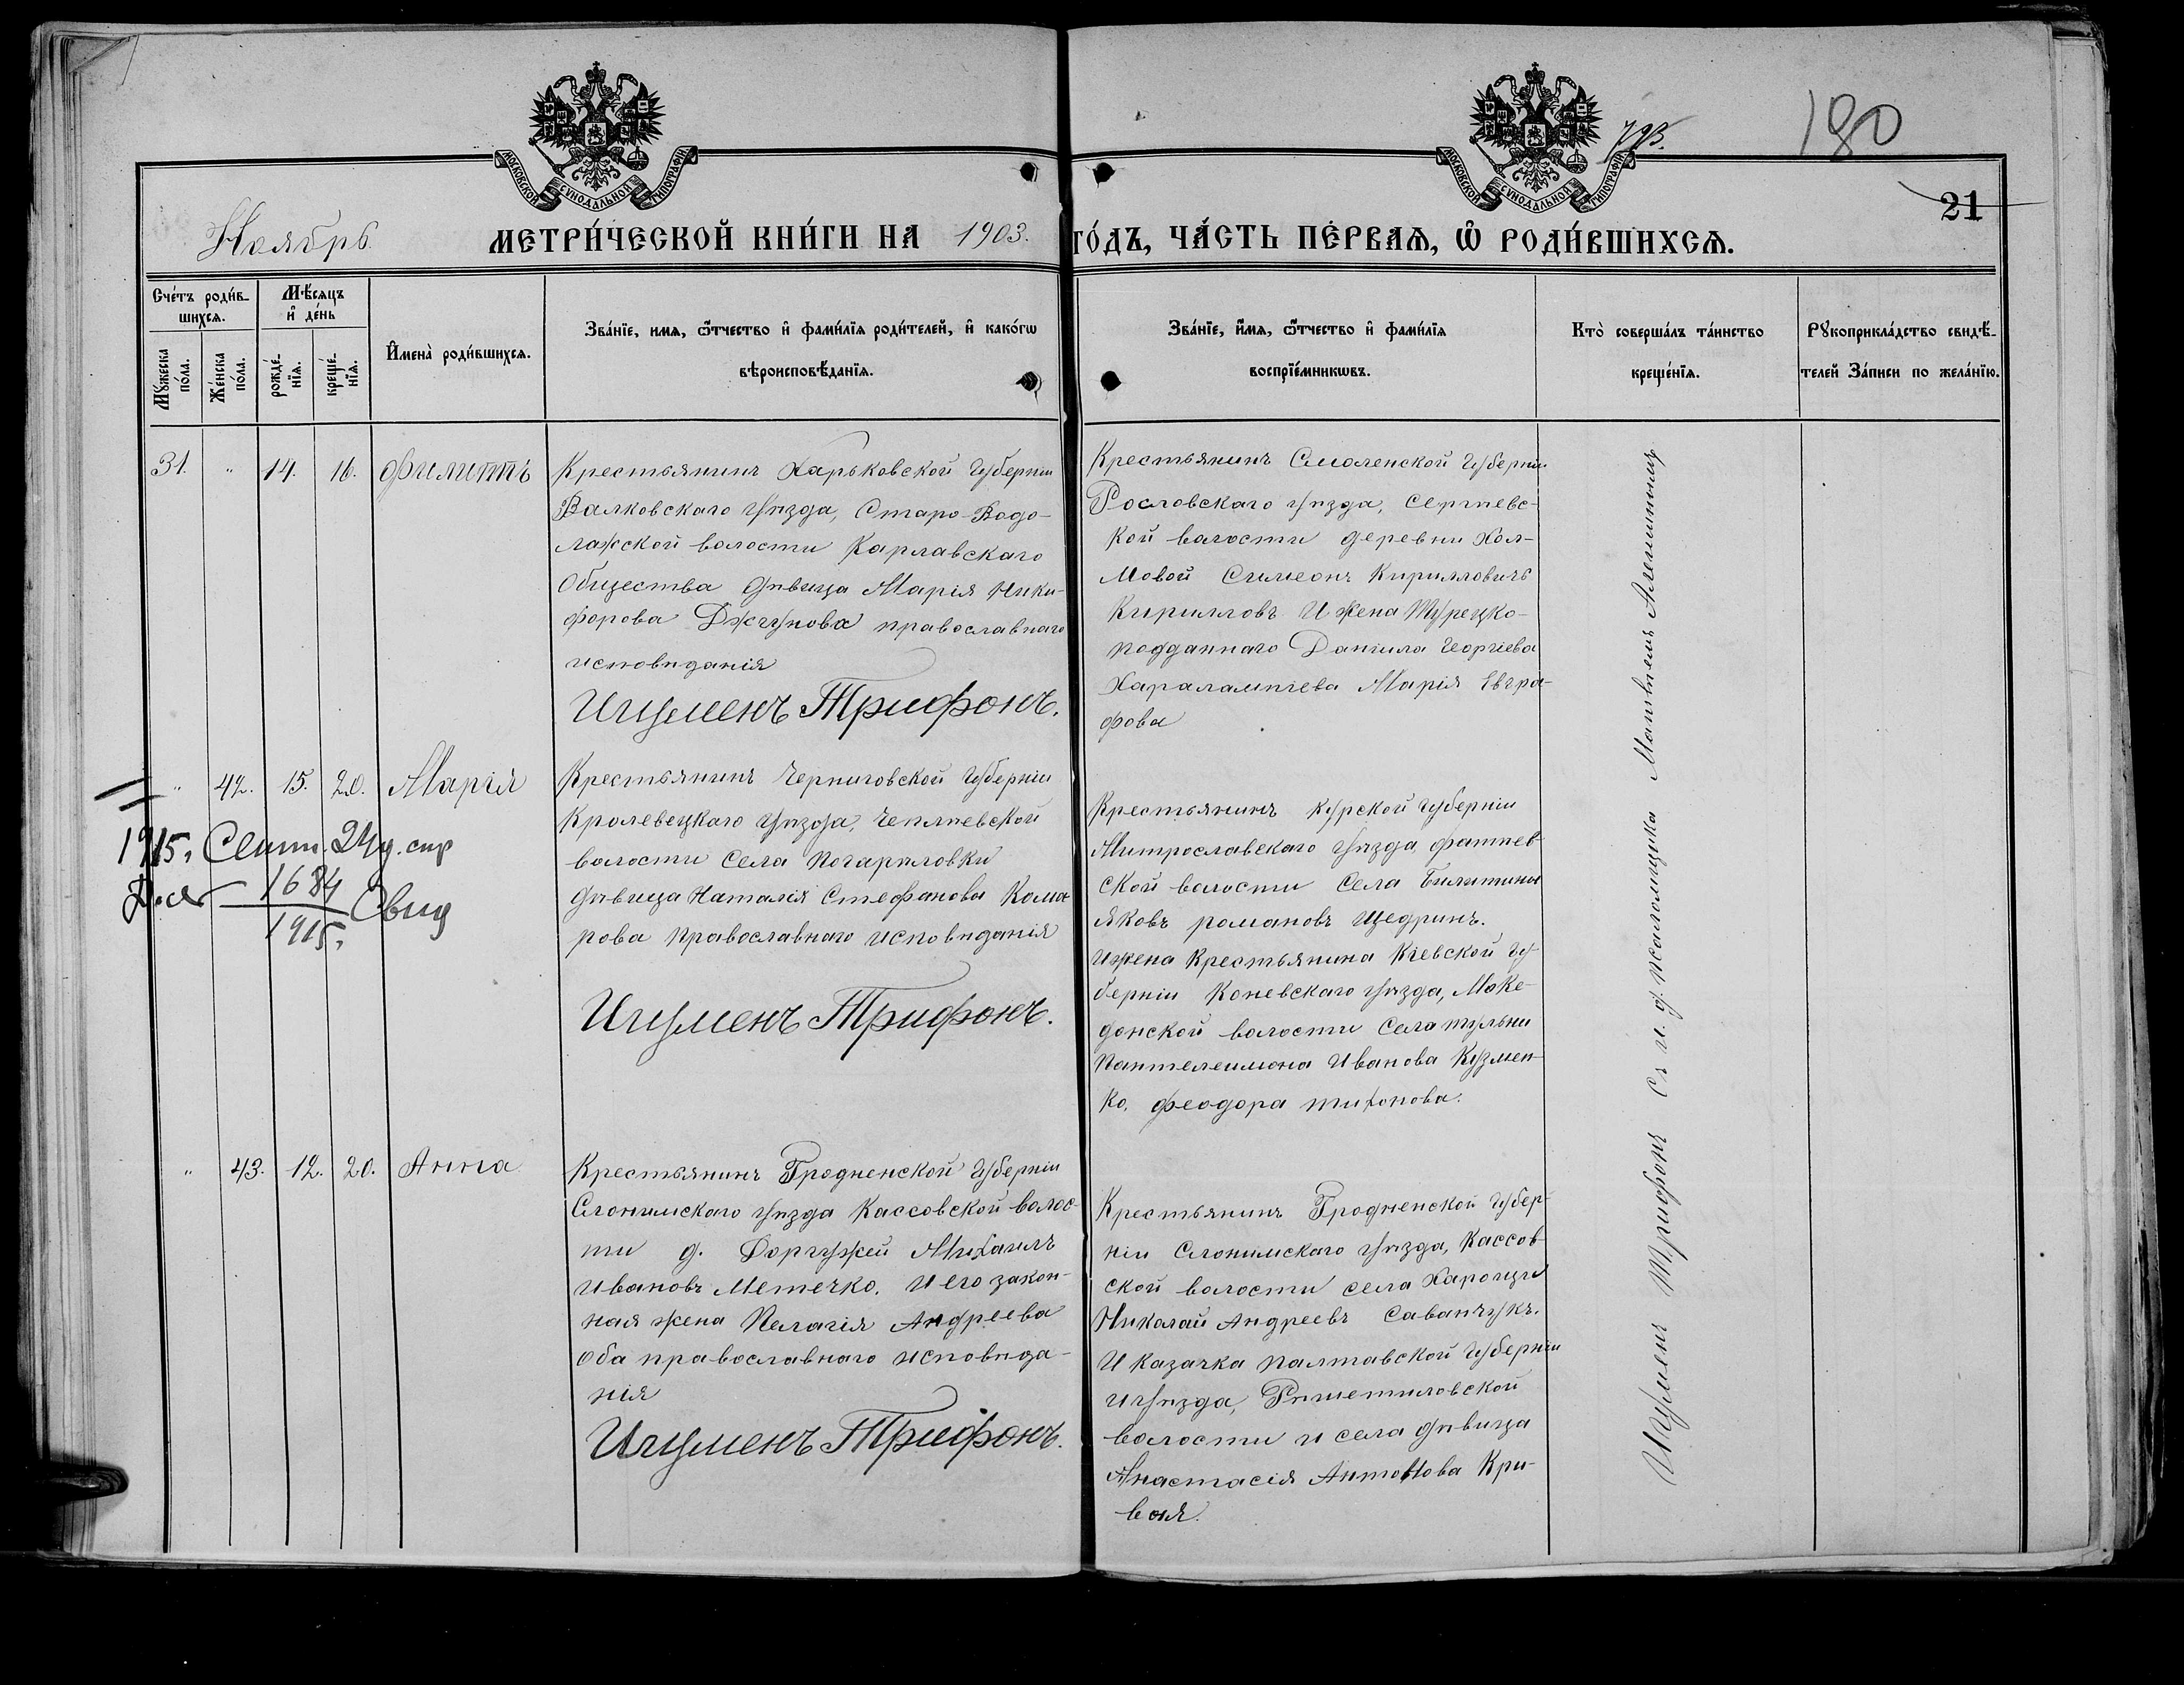 МОСКОВСКОЙ СѴНОДАЛЬНОЙ ТИПОГРАФІИ
МОСКОВСКОЙ СѴНОДАЛЬНОЙ ТИПОГРАФІИ
180
21
Ноябрь.
МЕТРИ́ЧЕСКОЙ КНИ́ГИ НА 1903. ГО́ДЪ, ЧА́СТЬ ПЕ́РВАѦ, Ѽ РОДИ́ВШИХСѦ.
Сче́тъ роди́в-
шихсѧ.
Мꙋ́жеска
по́ла.
Же́нска
по́ла.
Мѣ́сѧцъ
и҆ де́нь
рожде́-
нїѧ.
креще́-
нїѧ.
И҆мена̀ роди́вшихсѧ.
Зва́нїе, имѧ, ѻ҆́тчество и҆ фами́лїѧ роди́телей, и҆ како́гѡ
вѣроисповѣ́данїѧ.
Зва́нїе, и҆́мѧ, ѻ҆́тчество и҆ фами́лїѧ
воспрїе́мникѡвъ.
Кто̀ соверша́лъ та́инство
креще́нїѧ.
Рꙋкоприкла́дство свидѣ́-
телей За́писи по жела́нїю.
31. " 14. 16. Филиппъ
Крестьянинъ Харьковской Губерніи
Валковскаго Уѣзда, Старо-Водо-
лажской волости Карлавскаго
Общества дѣвица Марія Ники-
форова Джгунова православнаго
исповѣданія
Игуменъ Трифонъ.
Крестьянинъ Смоленской Губерніи
Рословскаго уѣзда, Сергіевс-
кой валости деревни Хол-
мовой Симеонъ Кирилловичъ
Кирилловъ И жена Турецко-
подданнаго Даніила Георгіева
Харалампіева Марія Евгра-
фова
" 42. 15. 20. Марія
Крестьянинъ Черниговской Губерніи
Кролевецкаго Уѣзда, Чеплѣевской
волости Села Погарѣловки
дѣвица Наталія Стефанова Кома
рова православнаго исповѣданія
Игуменъ Трифонъ.
1915,
1684
1915,
Крестьянинъ Курской Губерніи
Митрославскаго Уѣзда, фатѣев-
ской волости Села
Яковъ романовъ Щедринъ.
И жена Крестьянина Кіевской Гу-
берніи Коневскаго Уѣзда, Маке-
донской волости Села тульни
Пантелеимона Иванова Кузмен-
ко, Феодора тихонова.
" 43. 12. 20. Анна
Крестьянинъ Гродненской Губерніи
Слонимскаго Уѣзда Кассовской волос-
ти д. Михаилъ
Ивановъ Метечко. И его закон-
ная жена Пелагія Андреева
Оба православнаго исповѣда-
нія
Игуменъ Трифонъ.
Крестьянинъ Гродненской Губер-
ніи Слонимскаго Уѣзда, Кассов
ской волости села
Николай Андреевъ Саванчукъ.
И казачка Палтавской Губерніи
и Уѣзда, Рѣшетиловской
волости и села дѣвица
Анастасія Антонова Кри-
воя.
Игуменъ Трифонъ Съ и. д. псаломщика Матвѣемъ